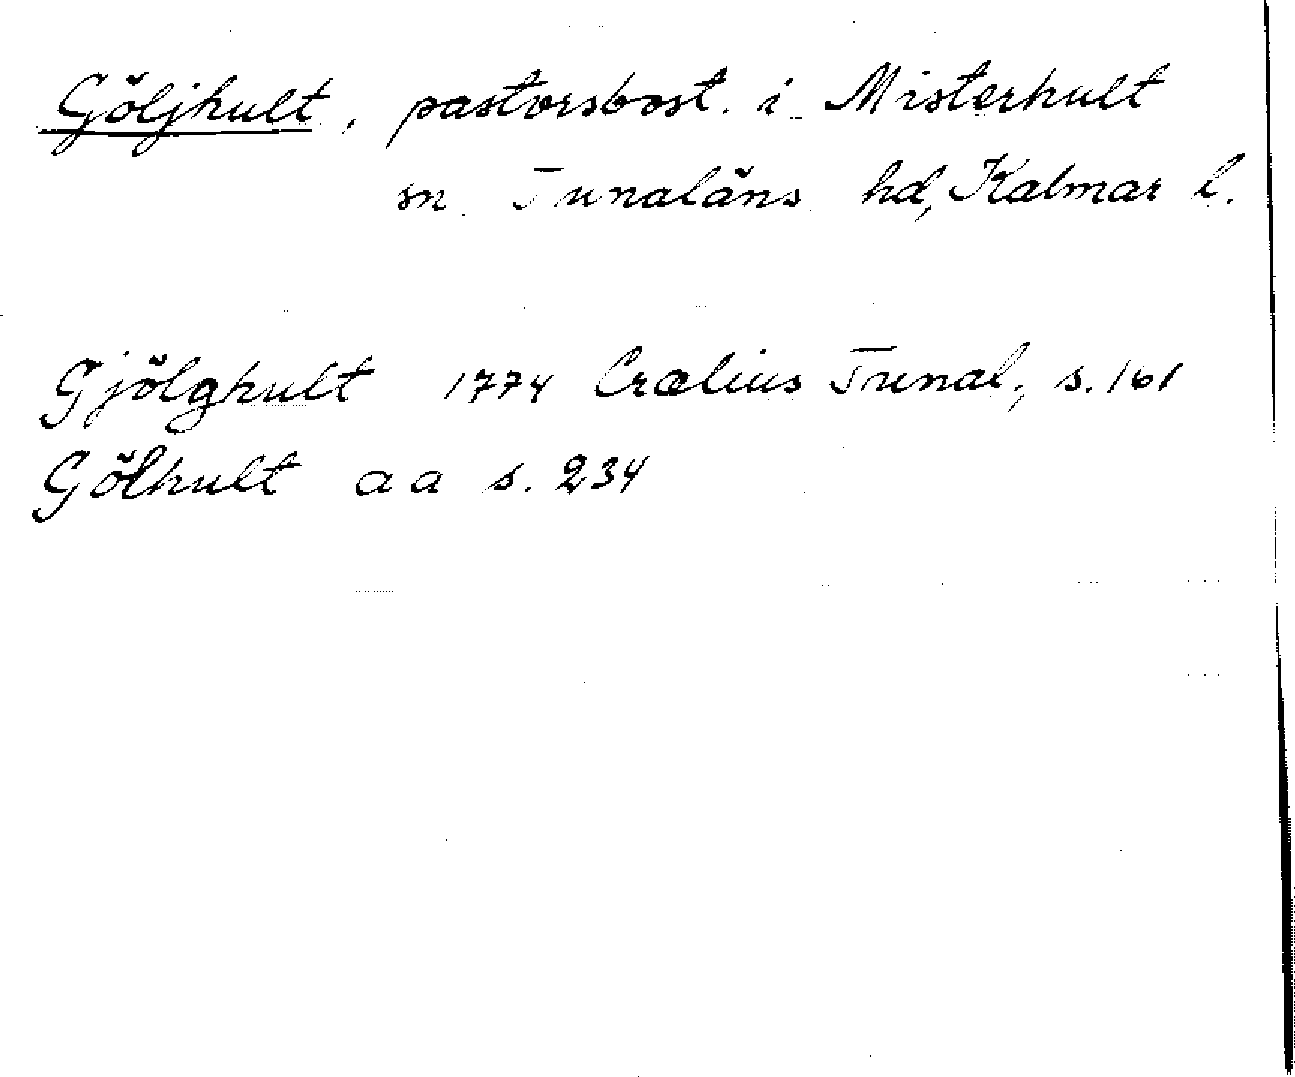 Göljhult, pastorsbost. i Misterhult
sn. Tunaläns hd, Kalmar l.
Gjölghult 1774 Crælius Tunal, s. 161
Gölhult aa s. 234